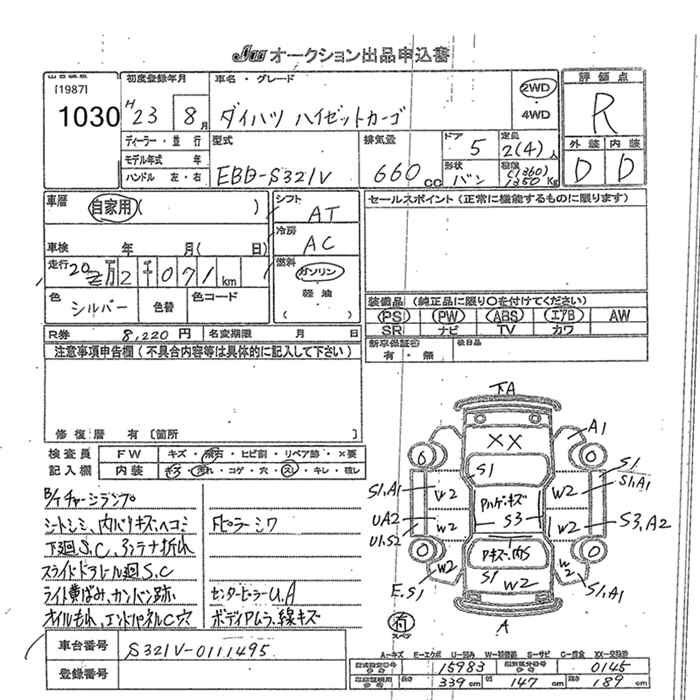 オークション出品申込書
[1987]
1030
初度登録年月
H 23 8月
車名・グレード
ダイハツ ハイゼットカーゴ
2WD
・
4WD
評価点
R
外装 内装
D D
ディーラー・並行
モデル年式 年
ハンドル 左・右
型式
EBD-S321V
排気量
660 cc
ドア
5
定員
2(4)人
形状
バン
積載
(1360)
1350 Kg
車歴
自家用( )
シフト
AT
冷房
AC
車検 年 月( 日)
走行
km
燃料
ガソリン
軽油
( )
色
シルバー
色替
色コード
R券
8,220円
名変期限 月 日
セールスポイント(正常に機能するものに限ります)
装備品(純正品に限り○を付けてください)
PS PW ABS エアB AW
SR ナビ TV カワ
新車保証書
有・無
後日品
注意事項申告欄(不具合内容等は具体的に記入して下さい)
修復歴 有 〔箇所
検査員
記入欄
FW
キズ・飛石・ヒビ割・リペア跡・×要
内装
キズ・汚れ・コゲ・穴・スレ・キレ・破レ
B/Tチャージランプ
シートシミ、内バリキズ、ヘコミ
下廻S.C、アンテナ折れ
スライドドアレール廻S.C
ライト黄ばみ、カンバン跡
オイルもれ、エンドパネルC穴
Fピラーシワ
センターピラーU.A
ボディアムラ、線キズ
車台番号
S321V-0111495
登録番号
下A
XX
A1
S1
S1
S1,A1
W2
W2
S1,A1
UA2
W2
W2
S3,A2
S3
U1.S2
S1
W2
W2
W2
E.S1
S1,A1
A
有
スペア
A-キズ E-エクボ U-凹み W-補修跡 S-サビ C-腐食 XX-交換済
型式指定番号
15983
類別区分番号
0145
339 cm
147 cm
高さ
189 cm